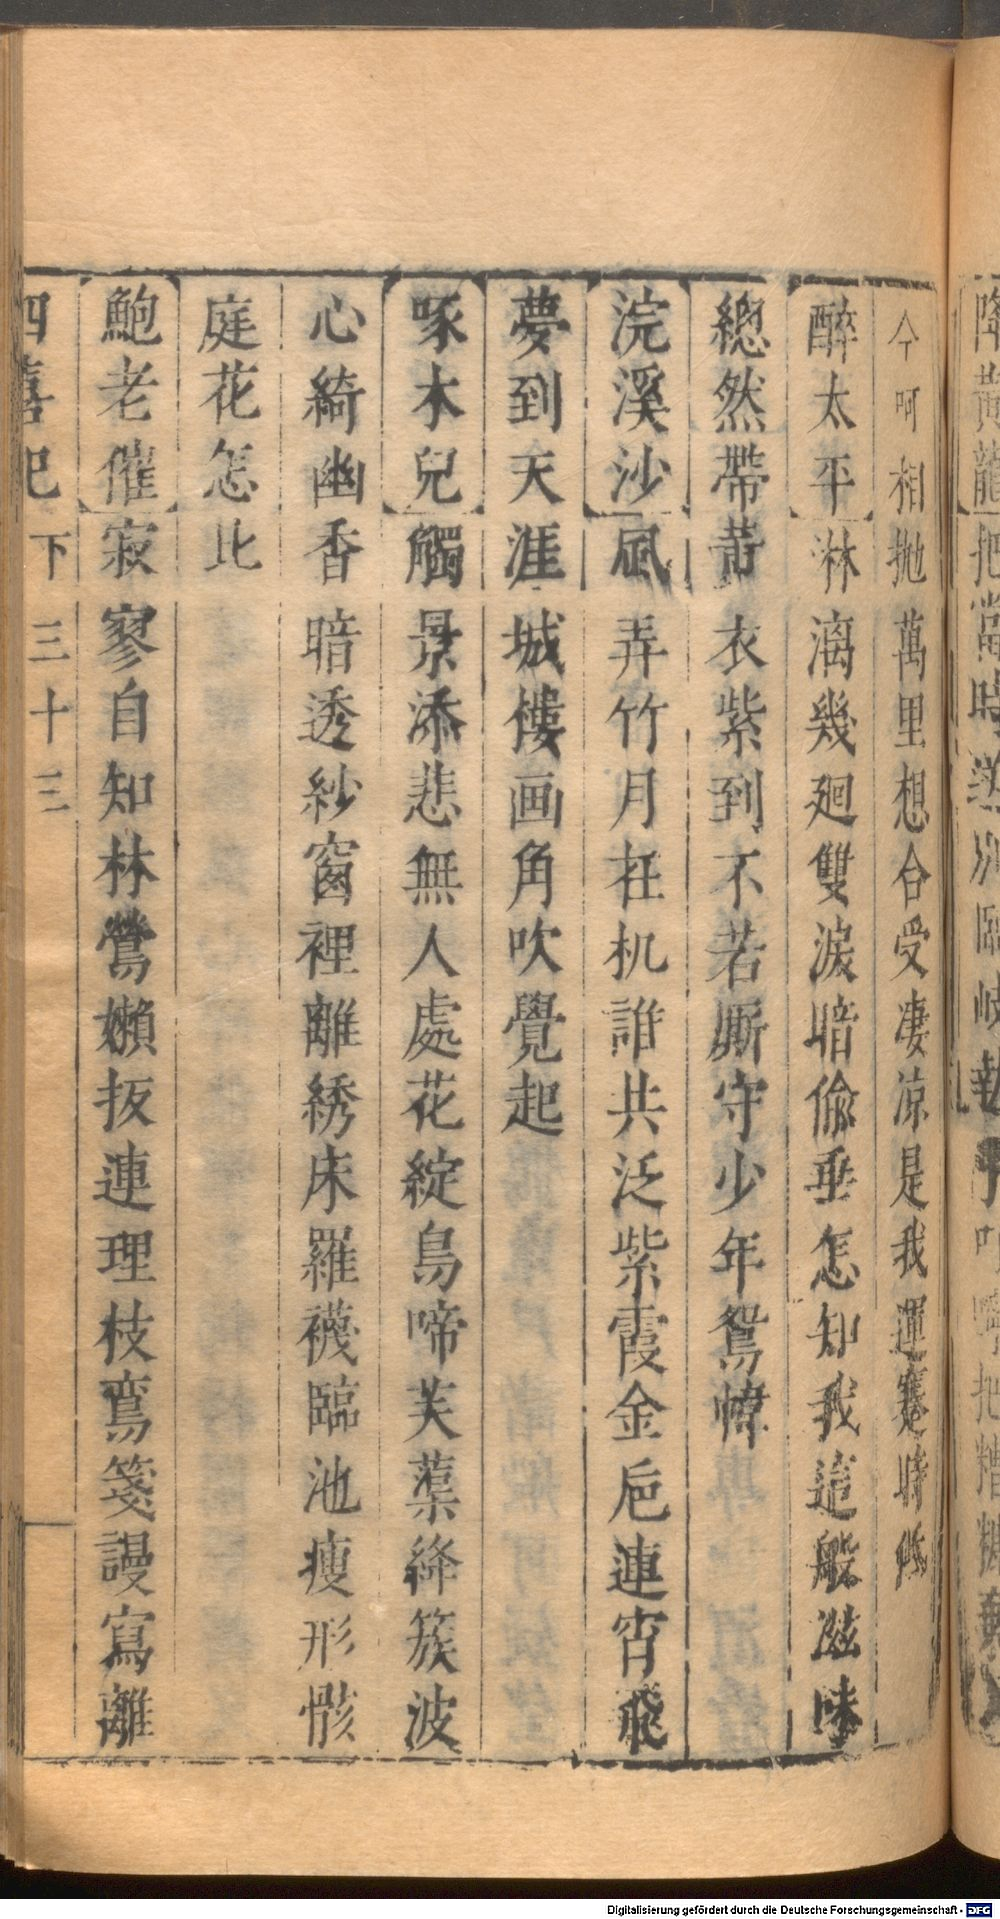 降黃龍把當時
今呵相拋萬里想合受凄涼是我運蹇時低
醉太平淋漓幾廻雙淚暗偷垂怎知我這般滋味
總然帶黃衣紫到不若厮守少年鴛幃
浣溪沙風弄竹月在机誰共泛紫霞金巵連宵飛
夢到天涯城樓画角吹覺起
啄木兒觸景添悲無人處花綻鳥啼芙蕖絳簇波
心綺幽香暗透紗窗裡離綉床羅襪臨池瘦形骸
庭花怎比
鮑老催寂寥自知林鶯嬾扳連理枝鸞箋謾寫離
四喜記 下 三十三
Digitalisierung gefördert durch die Deutsche Forschungsgemeinschaft - DFG